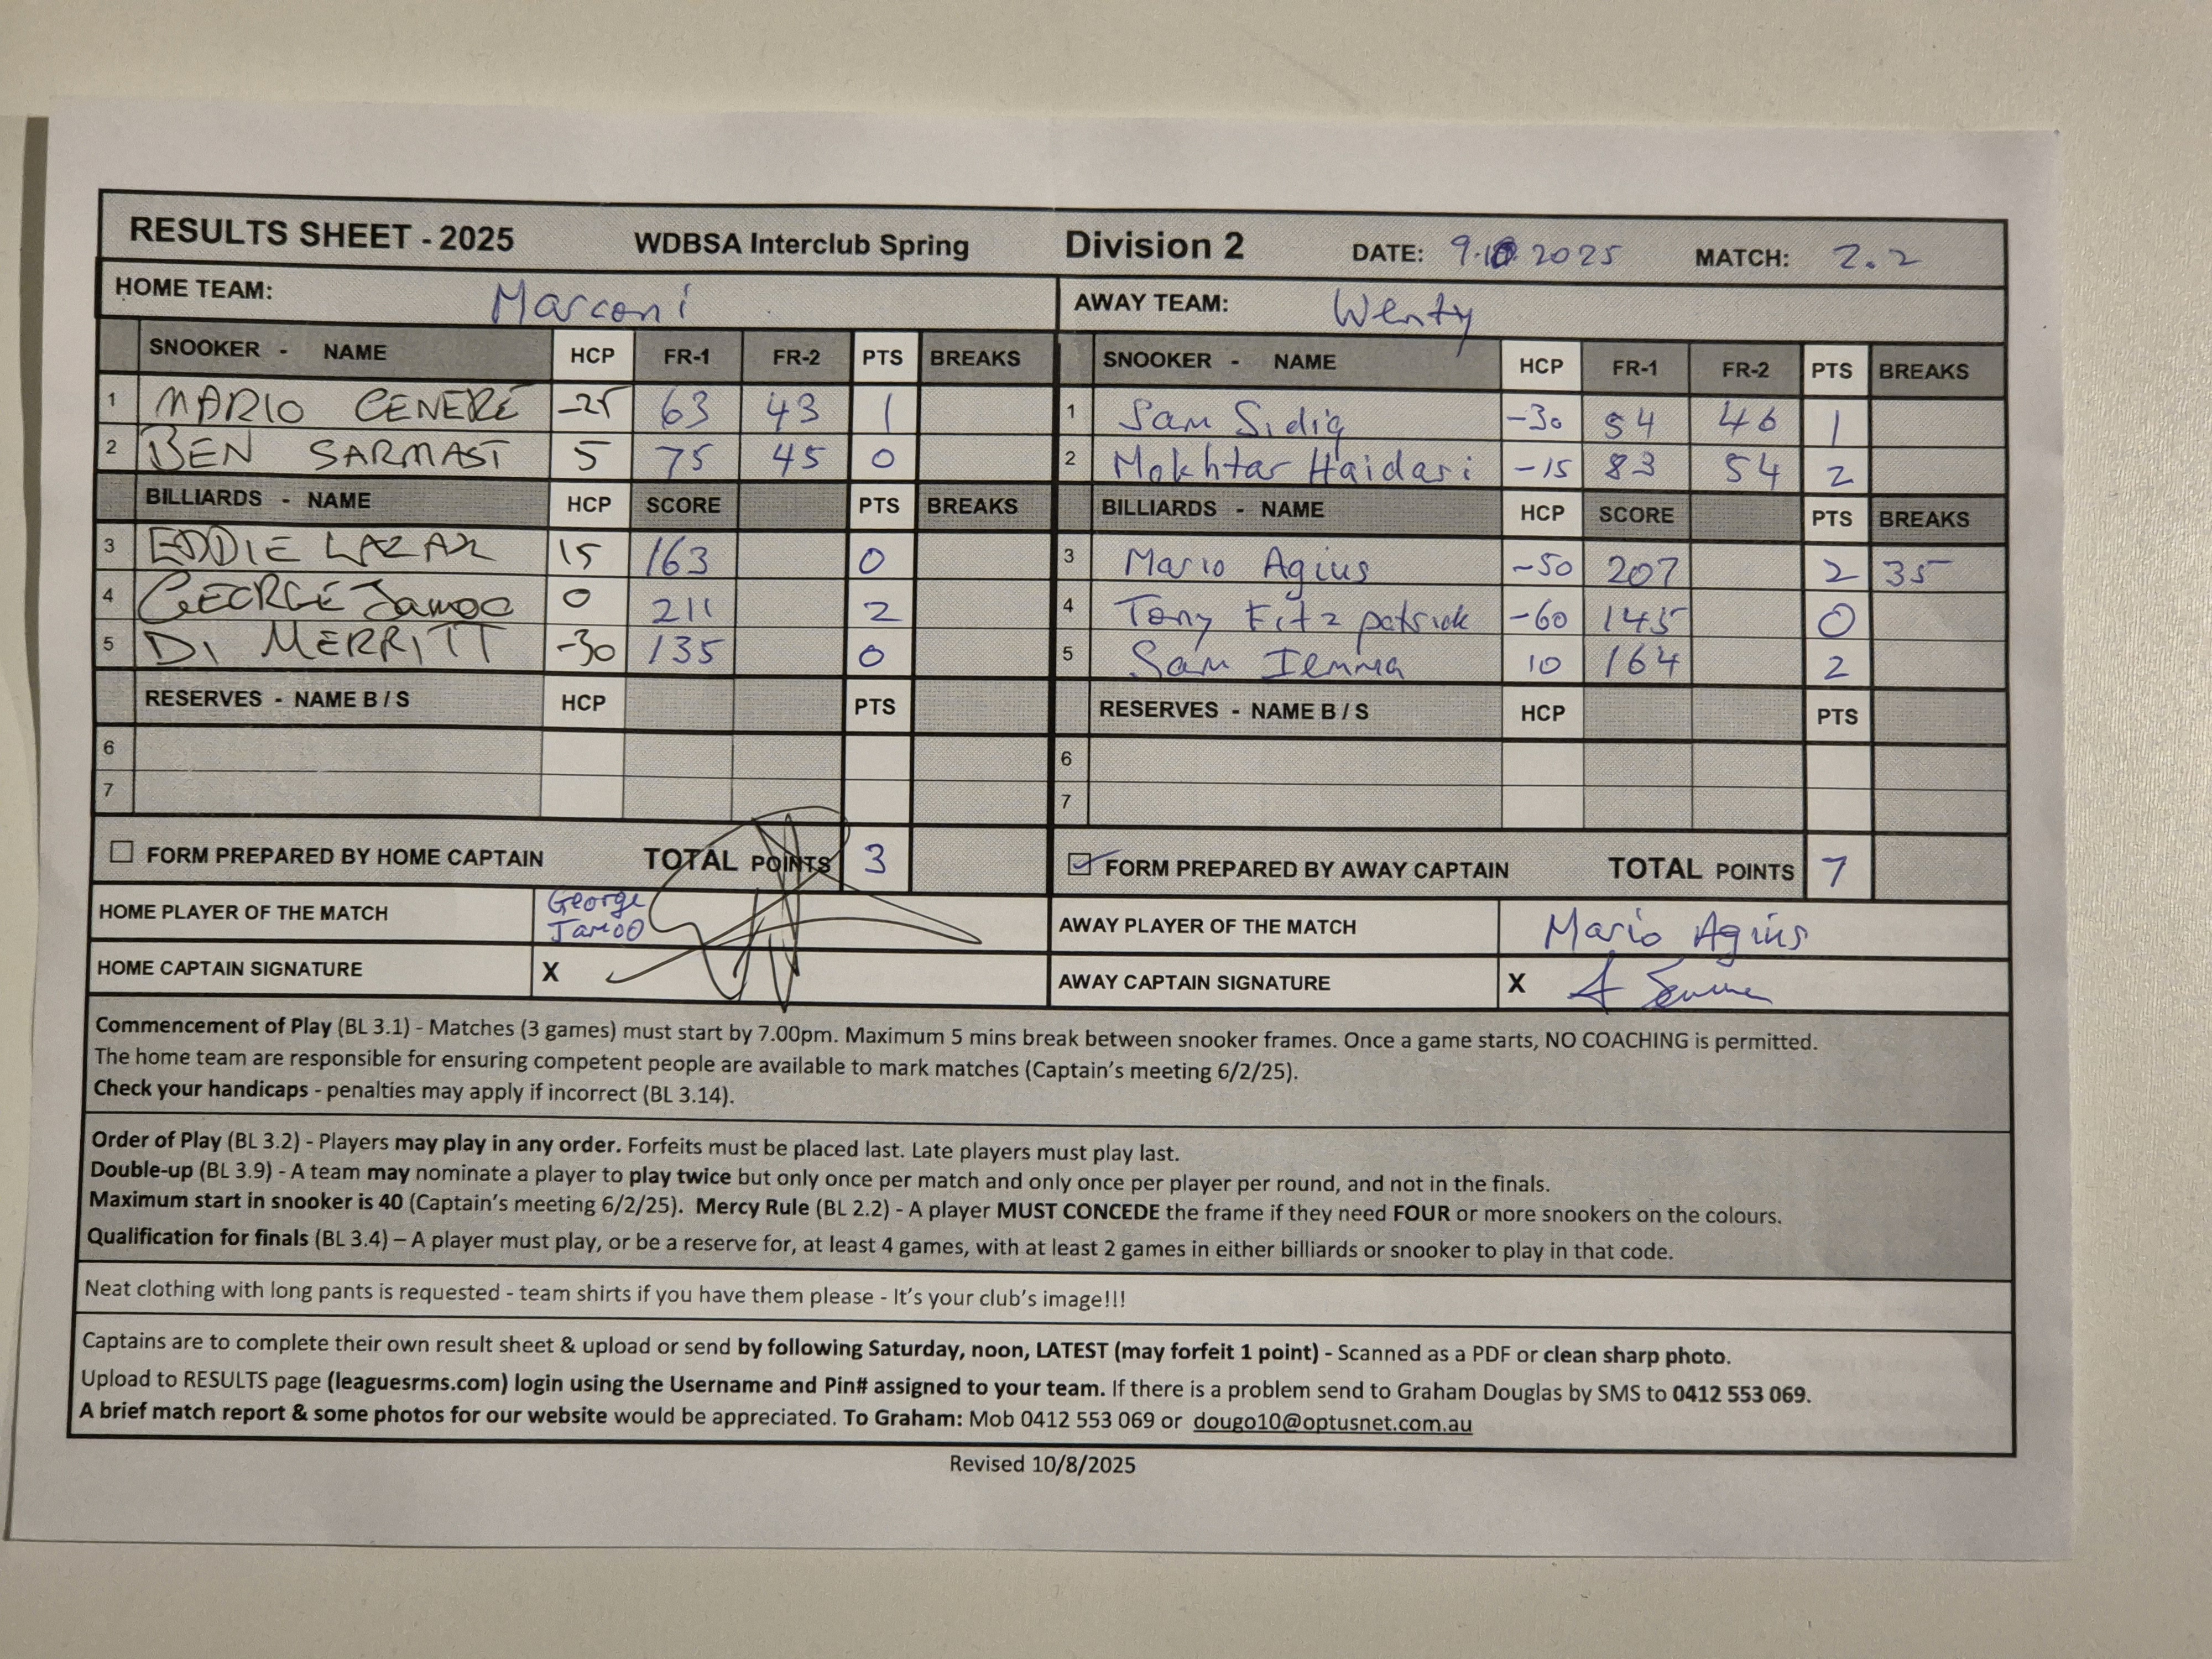 RESULTS SHEET - 2025 WDBSA Interclub Spring Division 2 DATE: 9.10.2025 MATCH: 2.2
HOME TEAM: Marconi AWAY TEAM: Wenty
SNOOKER - NAME HCP FR-1 FR-2 PTS BREAKS SNOOKER - NAME HCP FR-1 FR-2 PTS BREAKS
1 MARIO CENERE -25 63 43 1 1 Sam Sidiq -30 54 46 1
2 BEN SARMAST 5 75 45 0 2 Mokhtar Haidari -15 83 54 2
BILLIARDS - NAME HCP SCORE PTS BREAKS BILLIARDS - NAME HCP SCORE PTS BREAKS
3 EDDIE LAZAR 15 163 0 3 Mario Agius -50 207 2 35
4 GEORGE Jamoo 0 211 2 4 Tony Fitzpatrick -60 145 0
5 DI MERRITT -30 135 0 5 Sam Iemma 10 164 2
RESERVES - NAME B / S HCP PTS RESERVES - NAME B / S HCP PTS
6 6
7 7
FORM PREPARED BY HOME CAPTAIN TOTAL POINTS 3 FORM PREPARED BY AWAY CAPTAIN TOTAL POINTS 7
HOME PLAYER OF THE MATCH George Jamoo AWAY PLAYER OF THE MATCH Mario Agius
HOME CAPTAIN SIGNATURE X AWAY CAPTAIN SIGNATURE X
Commencement of Play (BL 3.1) - Matches (3 games) must start by 7.00pm. Maximum 5 mins break between snooker frames. Once a game starts, NO COACHING is permitted.
The home team are responsible for ensuring competent people are available to mark matches (Captain's meeting 6/2/25).
Check your handicaps - penalties may apply if incorrect (BL 3.14).
Order of Play (BL 3.2) - Players may play in any order. Forfeits must be placed last. Late players must play last.
Double-up (BL 3.9) - A team may nominate a player to play twice but only once per match and only once per player per round, and not in the finals.
Maximum start in snooker is 40 (Captain's meeting 6/2/25). Mercy Rule (BL 2.2) - A player MUST CONCEDE the frame if they need FOUR or more snookers on the colours.
Qualification for finals (BL 3.4) – A player must play, or be a reserve for, at least 4 games, with at least 2 games in either billiards or snooker to play in that code.
Neat clothing with long pants is requested - team shirts if you have them please - It's your club's image!!!
Captains are to complete their own result sheet & upload or send by following Saturday, noon, LATEST (may forfeit 1 point) - Scanned as a PDF or clean sharp photo.
Upload to RESULTS page (leaguesrms.com) login using the Username and Pin# assigned to your team. If there is a problem send to Graham Douglas by SMS to 0412 553 069.
A brief match report & some photos for our website would be appreciated. To Graham: Mob 0412 553 069 or dougo10@optusnet.com.au
Revised 10/8/2025